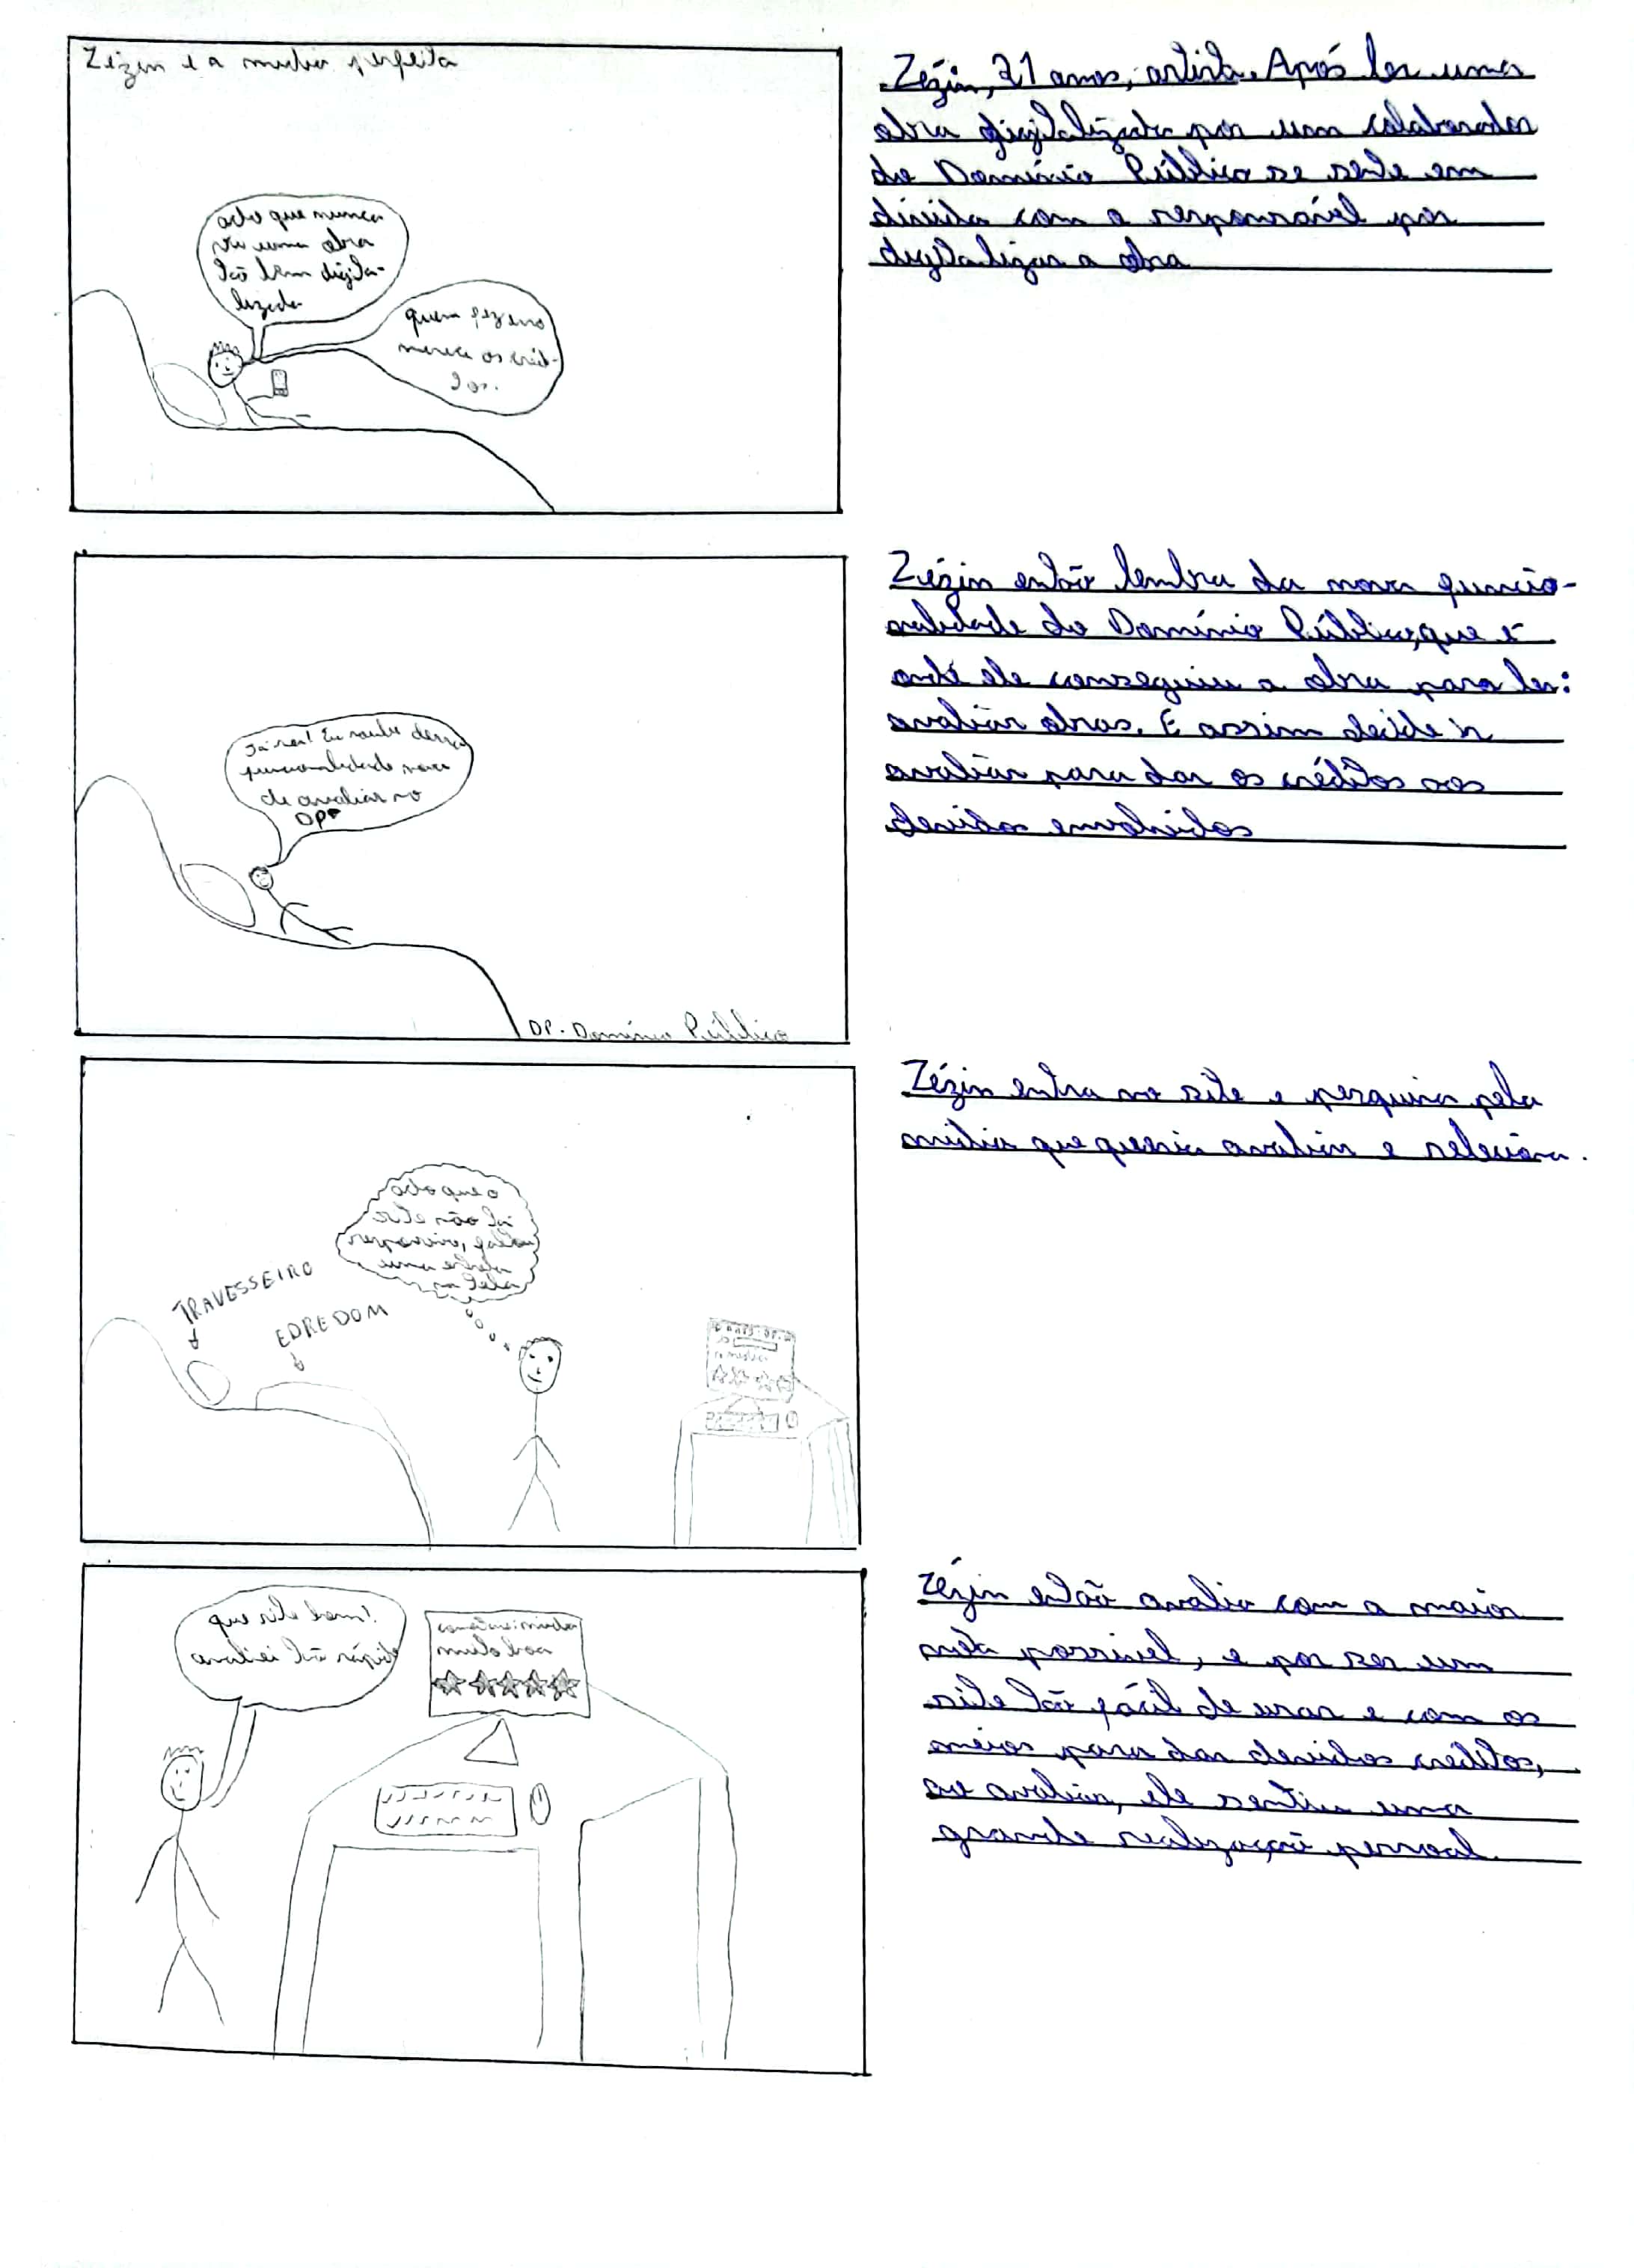 Zézin e a mídia perfeita
acho que nunca
vi uma obra
tão bem digita-
lizada
quem fez isso
merece os crédi-
tos.
Zézin, 21 anos, artista. Após ler uma
obra digitalizada por um colaborador
do Domínio Público se sente em
dívida com o responsável por
digitalizar a obra
Já sei! Eu soube dessa
funcionalidade nova
de avaliar no
DP*
DP - Domínio Público
Zézin então lembra da nova funcio-
nalidade do Domínio Público, que é
onde ele conseguiu a obra para ler:
avaliar obras. E assim decide ir
avaliar para dar os créditos aos
devidos envolvidos
acho que o
site não tá
responsivo, faltou
uma estrela
na tela
TRAVESSEIRO
EDREDOM
Zézin entra no site e pesquisa pela
mídia que queria avaliar e seleciona.
que site bom!
avaliei tão rápido
comentário: mídia
muito boa
Zézin então avalia com a maior
nota possível, e por ser um
site tão fácil de usar e com os
meios para dar devidos créditos,
ao avaliar, ele sentiu uma
grande realização pessoal.